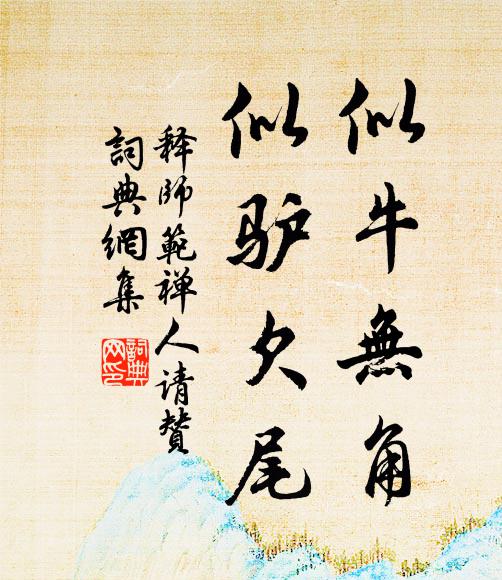 似牛無角
似驴欠尾
释師範禅人请贊
詞典網集
詞典网印